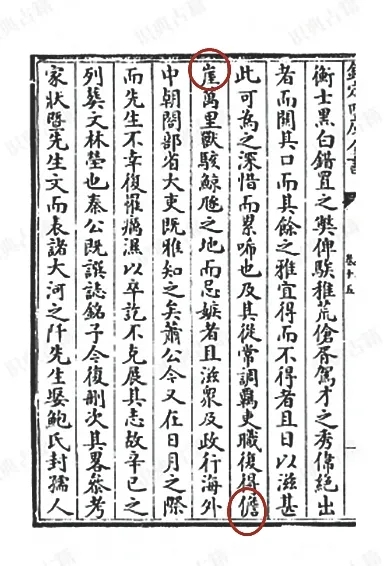 欽定四庫全書
卷十五
衡士黑白錯置之獘俾騃雅荒傖吝駕才之秀偉絕出
者而關其口而其餘之雅宜得而不得者且日以滋甚
此可為之深惜而累唏也及其從常調羈吏職復得儋
崖萬里獸駭鯨豗之地而忌嫉者且滋衆及政行海外
中朝閣部省大吏既雅知之矣蕭公今又在日月之際
而先生不幸復罹瘴濕以卒訖不克展其志故辛巳之
列葬文林塋也秦公既譔誌銘予今復刪次其畧叅考
家狀暨先生文而表諸大河之阡先生娶鮑氏封孺人
识典古籍